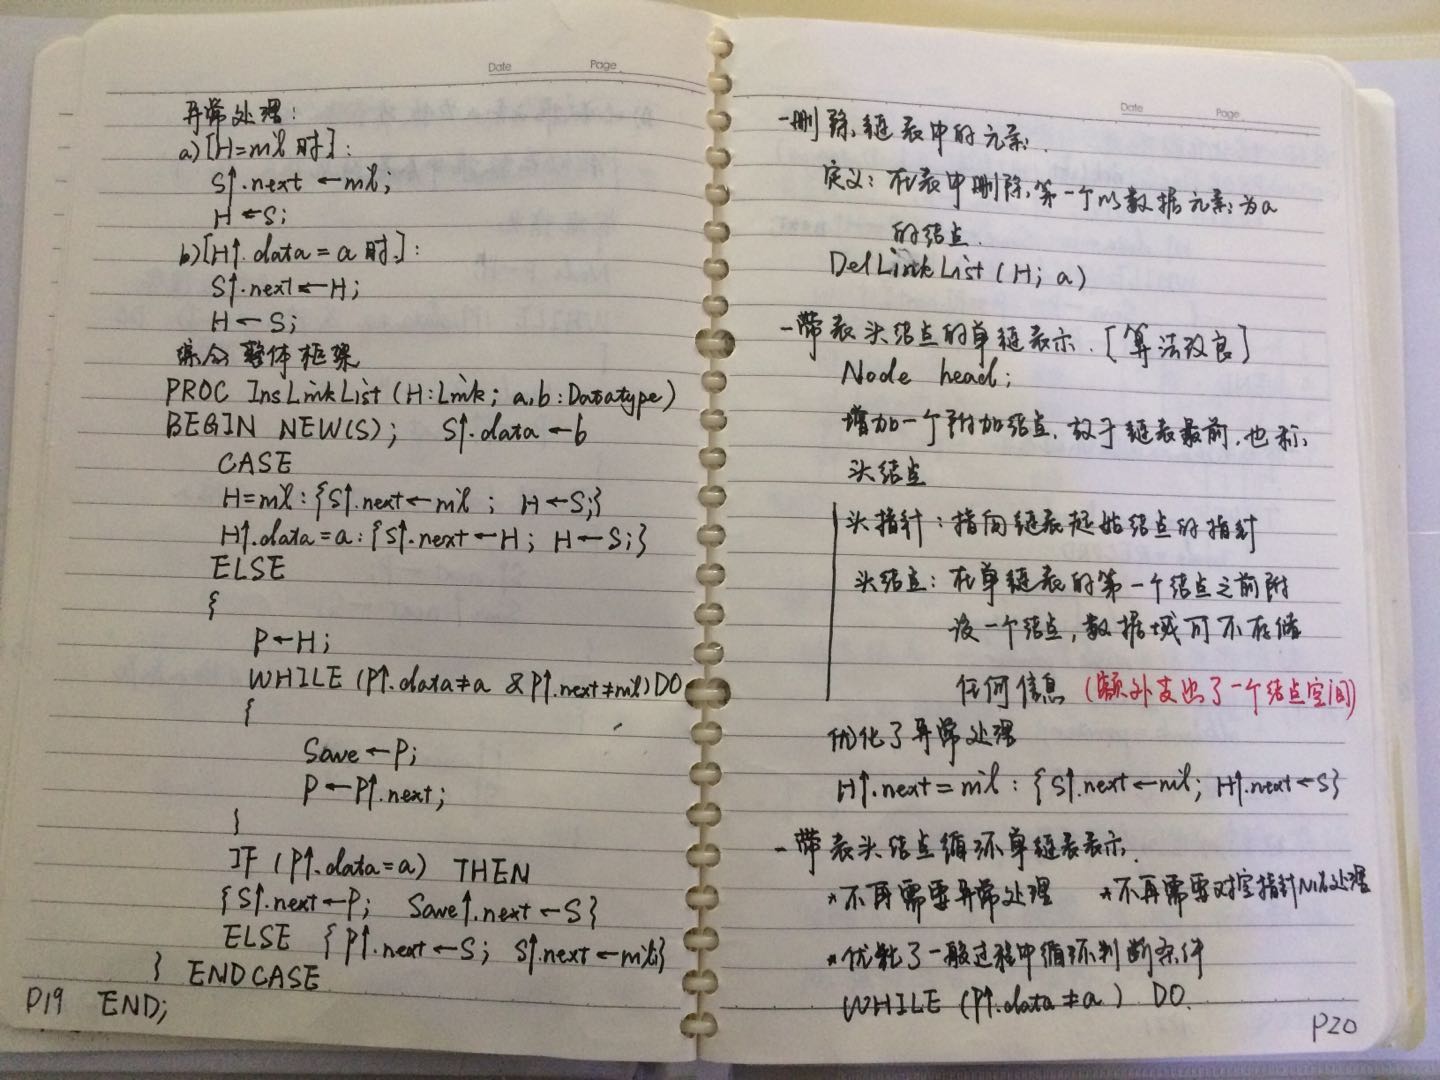 Date Page
异常处理：
a)[H=nil时]：
S↑.next ←nil;
H ←S;
b)[H↑.data = a 时]：
S↑.next ←H;
H ← S;
综合整体框架
PROC InsLinkList (H:Link; a,b:Datatype)
BEGIN NEW(S); S↑.data ←b
CASE
H=nil:{S↑.next←nil ; H ←S;}
H↑.data=a:{S↑.next ←H; H ←S;}
ELSE
{
P←H;
WHILE (P↑.data≠a & P↑.next≠nil) DO
{
Save ←P;
P ←P↑.next;
}
IF (P↑.data=a) THEN
{S↑.next←P; Save↑.next ←S}
ELSE {P↑.next←S; S↑.next ←nil;}
} ENDCASE
P19 END;
Date Page
-删除链表中的元素.
定义：在表中删除第一个以数据元素为a
的结点.
DelLinkList (H; a)
-带表头结点的单链表示.[算法改良]
Node head;
增加一个附加结点，放于链表最前，也称
头结点
头指针：指向链表起始结点的指针
头结点：在单链表的第一个结点之前附
设一个结点，数据域可不存储
任何信息 (额外支出了一个结点空间)
优化了异常处理
H↑.next = nil : {S↑.next ←nil; H↑.next ←S}
-带表头结点循环单链表表示.
*不再需要异常处理 *不再需要对空指针Nil处理
*优化了一般过程中循环判断条件
WHILE (P↑.data ≠a) DO
P20